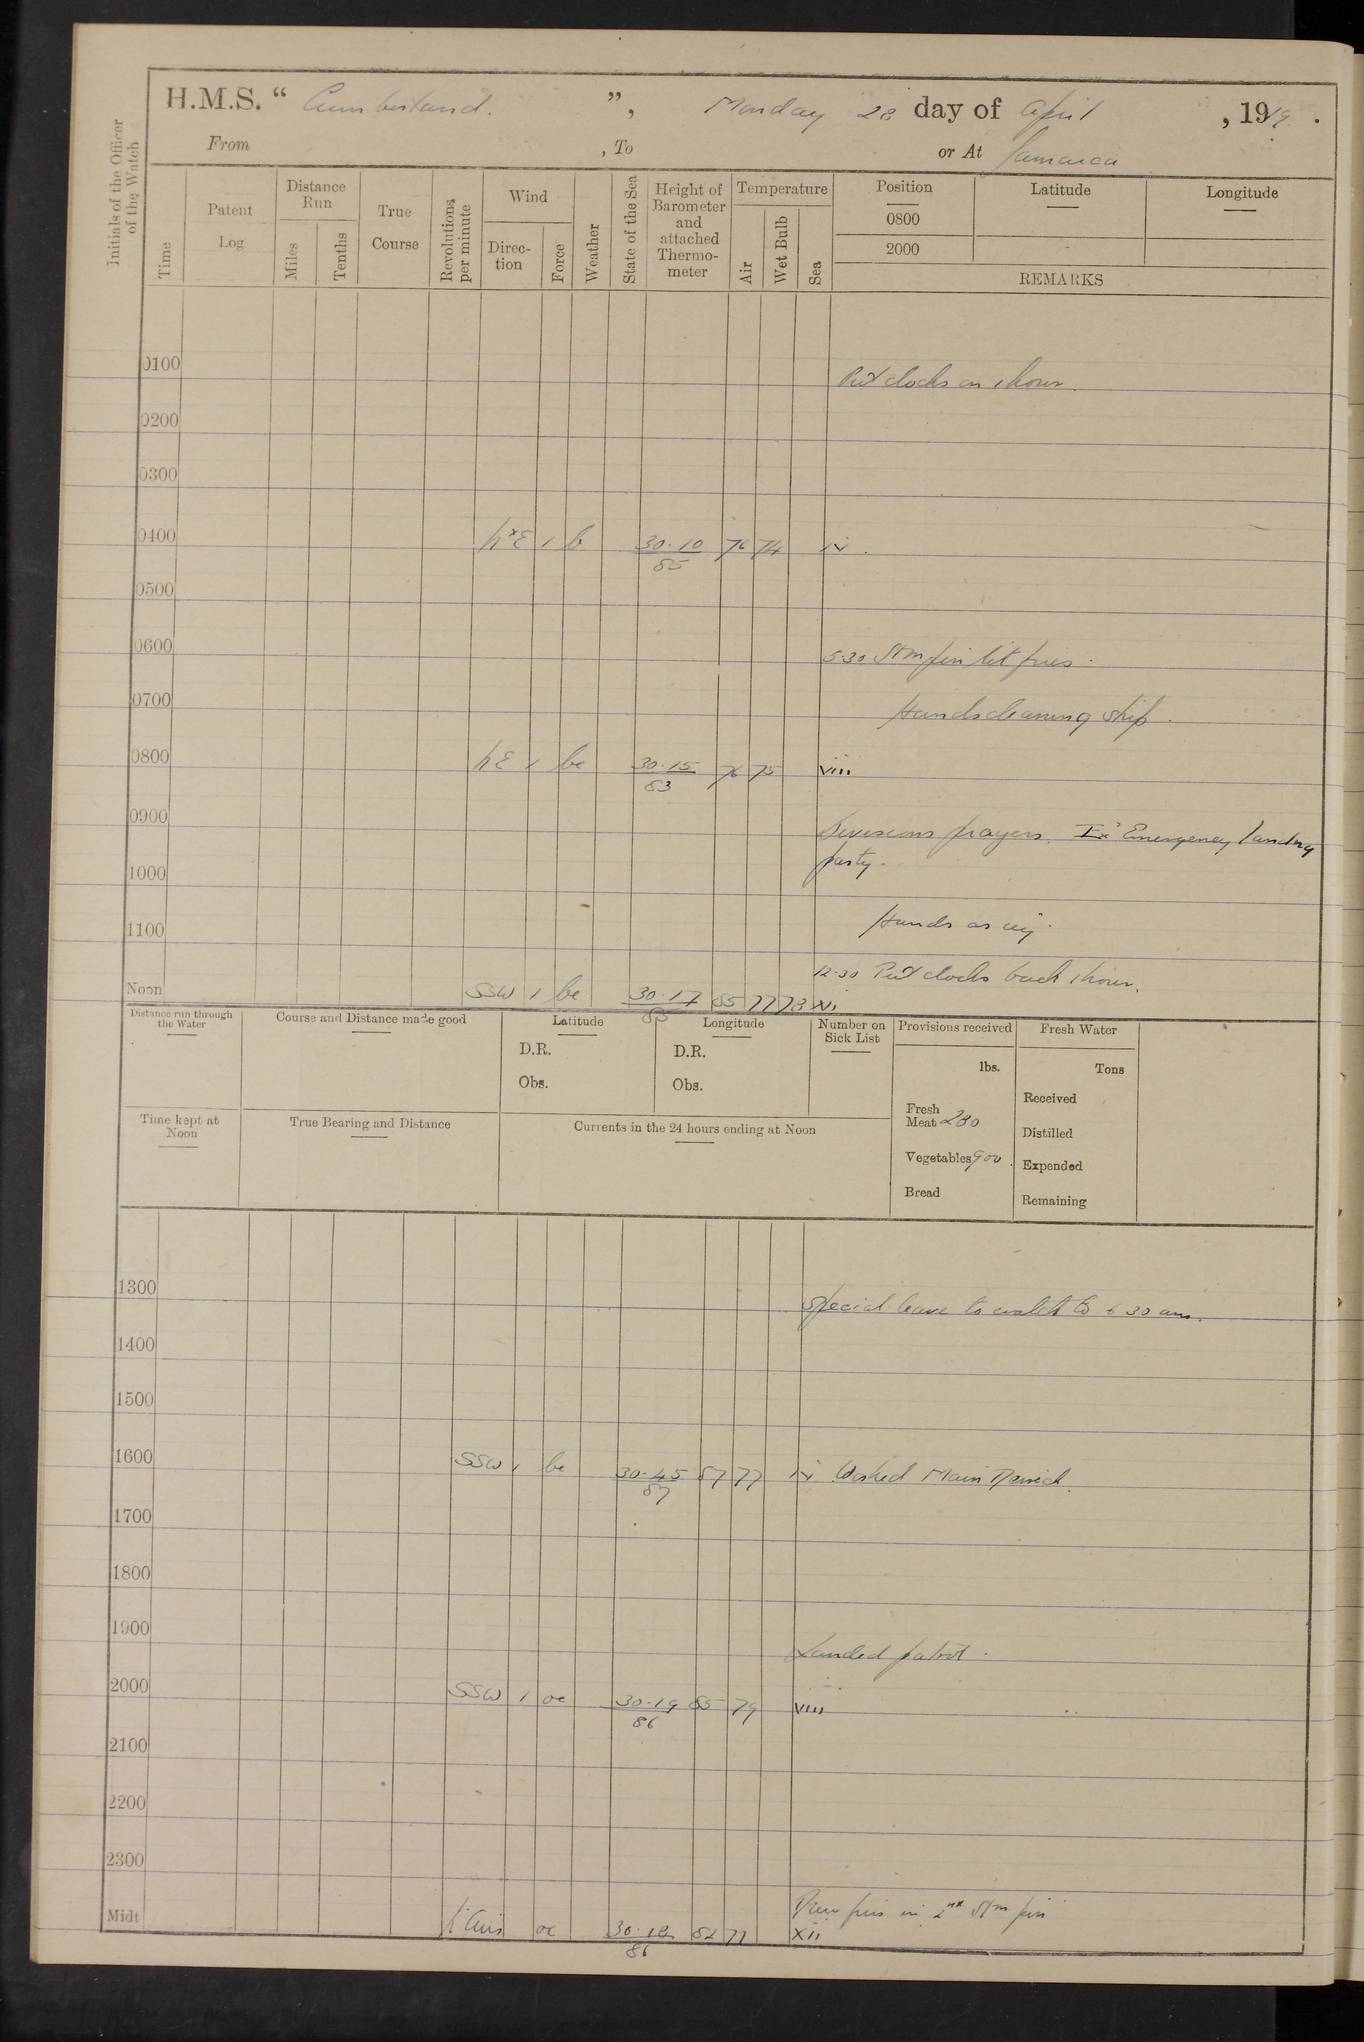 H.M.S. “ Cumberland. ”, Monday 28 day of April, 1919.
From , To or At Jamaica
Initials of the Officer of the Watch
Time
Patent Log
Distance Run
Miles
Tenths
True Course
Revolutions per minute
Wind
Direc-tion
Force
Weather
State of the Sea
Height of Barometer and attached Thermo-meter
Temperature
Air
Wet Bulb
Sea
Position
0800
2000
Latitude
Longitude
REMARKS
0100 Put clocks on 1 hour.
0200
0300
0400 N×E 1 b 30.10 76 74 iv.
85
0500
0600 5.30 Stm pin lit fires.
0700 Hands cleaning ship.
0800 NE 1 bc 30.15 76 75 viii
83
0900 Divisions prayers. Ex' Emergency landing
party.
1000
1100 Hands as req.
12.00 Put clocks back 1 hour.
Noon SSW 1 bc 30.17 85 77 78 xii
85
Distance run through the Water
Course and Distance made good
Latitude
D.R.
Obs.
Longitude
D.R.
Obs.
Number on Sick List
Provisions received
lbs.
Fresh Meat 280
Vegetables 900.
Bread
Fresh Water
Tons
Received
Distilled
Expended
Remaining
Time kept at Noon
True Bearing and Distance
Currents in the 24 hours ending at Noon
1300 Special leave to watch to 6 30 am.
1400
1500
1600 SSW 1 bc 30.45 87 77 iv Washed Main
87
1700
1800
1900 Landed patrol.
2000 SSW 1 oc 30.19 85 79 viii
86
2100
2200
2300
in 2nd Stm pin
Midt oc 30.18 82 77 xii
86